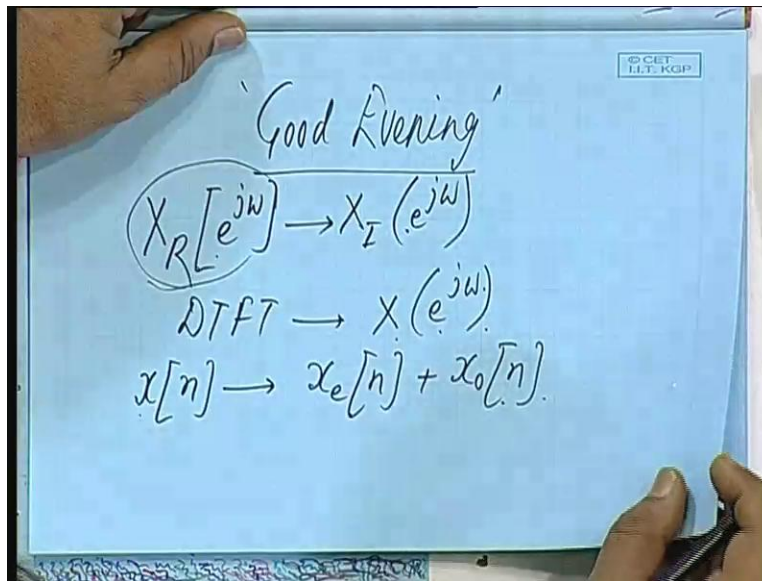 © CET
I.I.T. KGP
'Good Evening'
X_R[e^{jω}] → X_I(e^{jω})
DTFT → X(e^{jω})
x[n] → x_e[n] + x_o[n]